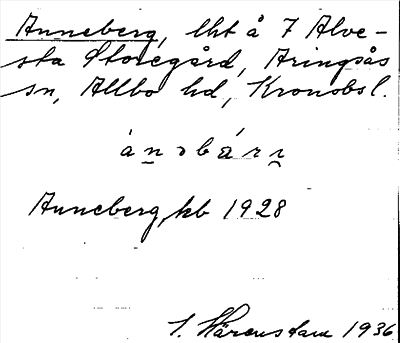 Anneberg, lht å 7 Alve-
sta Storegård, Aringsås
sn, Allbo hd, Kronobsl.
ànəbárı
Anneberg, kb 1928
Härenstam 1936